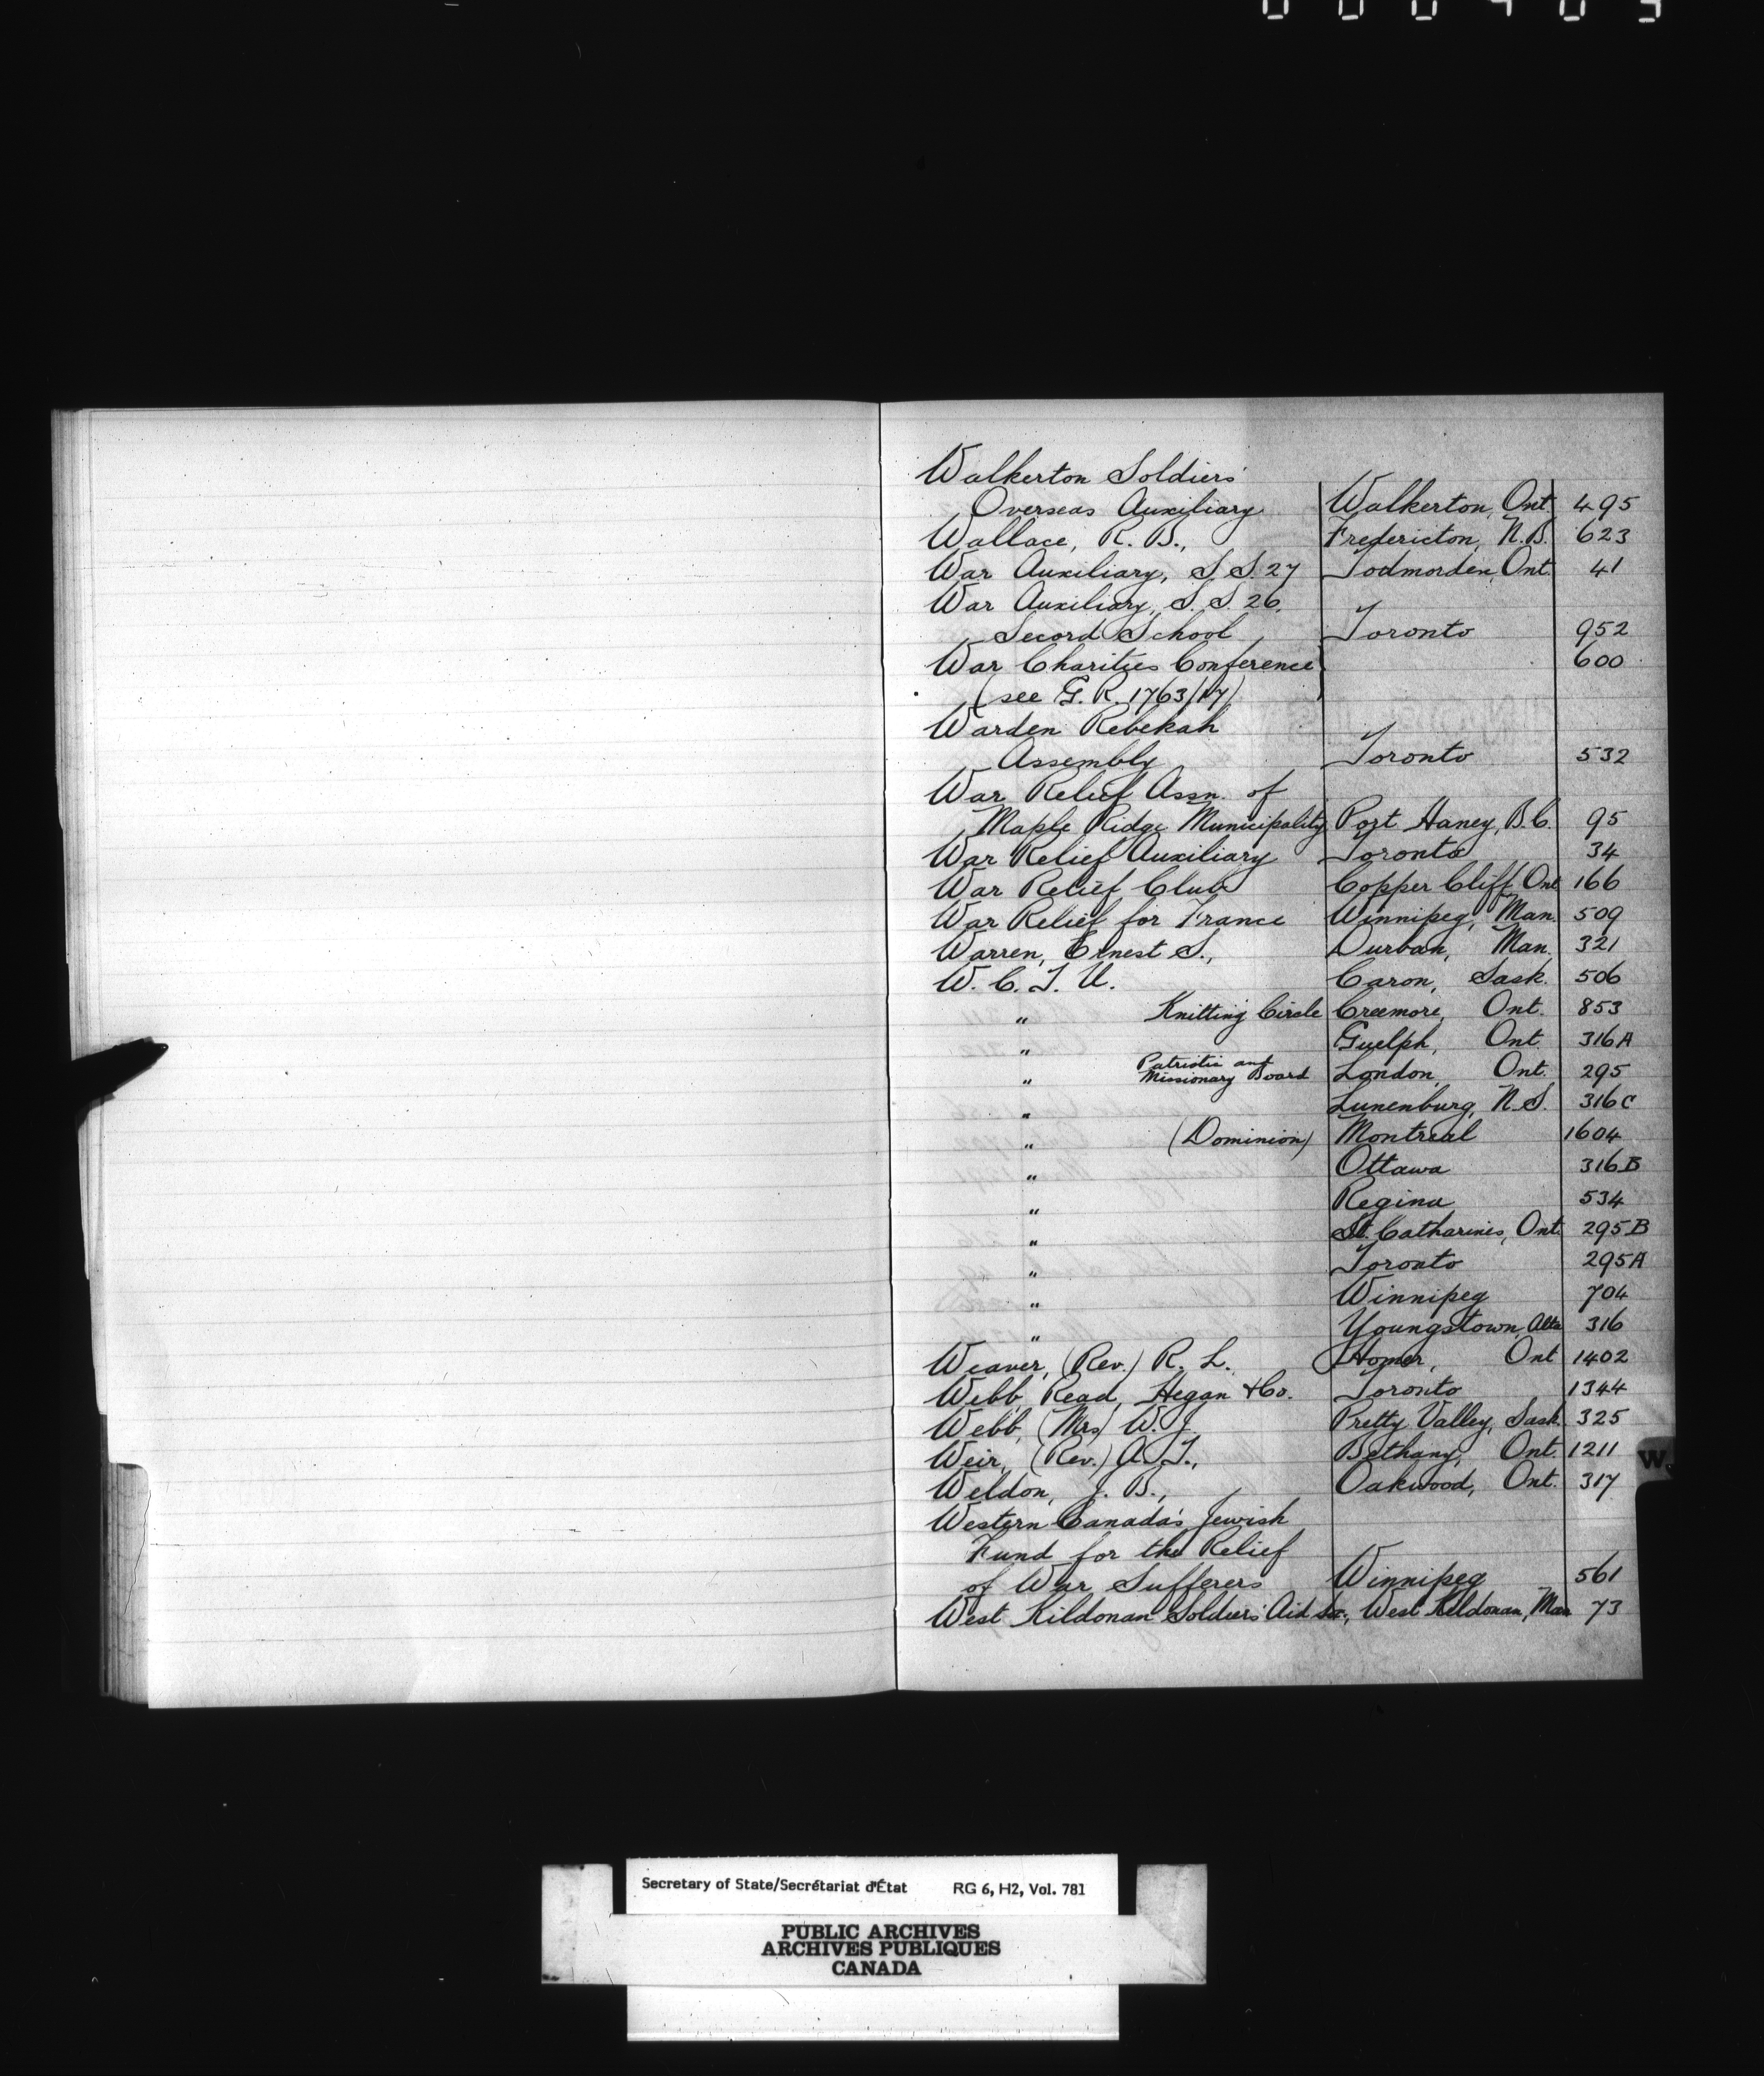 Walkerton Soldiers'
Overseas Auxiliary Walkerton, Ont. 495
Wallace, R. B., Fredericton, N.B. 623
War Auxiliary, S.S. 27 Todmorden, Ont. 41
War Auxiliary, S.S. 26.
Secord School Toronto 952
War Charities Conference 600
(see G.R. 1763/17)
Warden Rebekah
Assembly Toronto 532
War Relief Assn. of
Maple Ridge Municipality Port Haney, B.C. 95
War Relief Auxiliary Toronto 34
War Relief Club Copper Cliff, Ont 166
War Relief for France Winnipeg, Man. 509
Warren, Ernest S., Durban, Man. 321
W. C. T. U. Caron, Sask. 506
" Knitting Circle Creemore, Ont. 853
" Guelph, Ont. 316A
" Patriotic and Missionary Board London, Ont. 295
" Lunenburg, N.S. 316C
" (Dominion) Montreal 1604
" Ottawa 316B
" Regina 534
" St. Catharines, Ont. 295B
" Toronto 295A
" Winnipeg 704
" Youngstown, Alta 316
Weaver, (Rev.) R. L. Homer, Ont 1402
Webb, Read, Hegan & Co. Toronto 1344
Webb, (Mrs) W. J. Pretty Valley, Sask. 325
Weir, (Rev.) A. T., Bethany, Ont. 1211
Weldon, J. B., Oakwood, Ont. 317
Western Canada's Jewish
Fund for the Relief
of War Sufferers Winnipeg 561
West Kildonan Soldiers' Aid Soc., West Kildonan, Man 73
W.
Secretary of State/Secrétariat d'État RG 6, H2, Vol. 781
PUBLIC ARCHIVES
ARCHIVES PUBLIQUES
CANADA